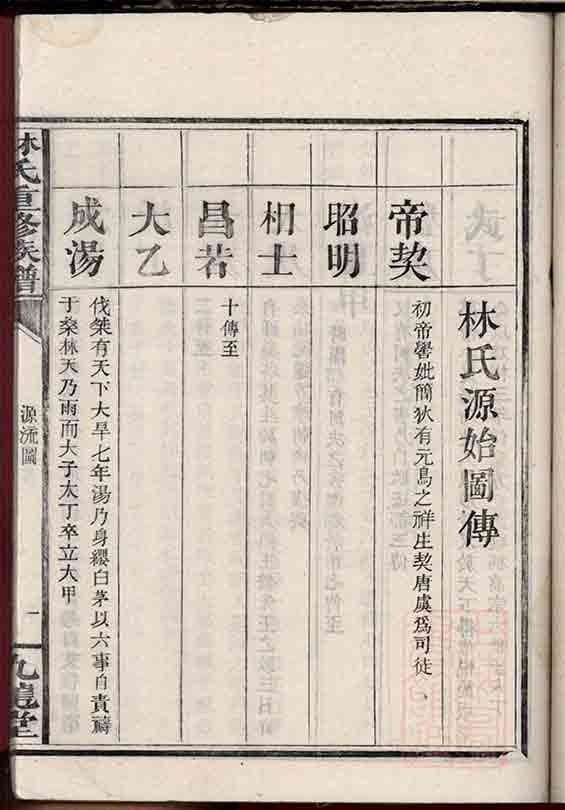 林氏源始圖傳
帝契
初帝嚳妣簡狄有元鳥之祥生契唐虞爲司徒
昭明
相士
昌若
十傳至
大乙
成湯
伐桀有天下大旱七年湯乃身纓白茅以六事自責禱
于桑林天乃雨而大子太丁卒立大甲
林氏重修族譜
源流圖
一
九龍堂